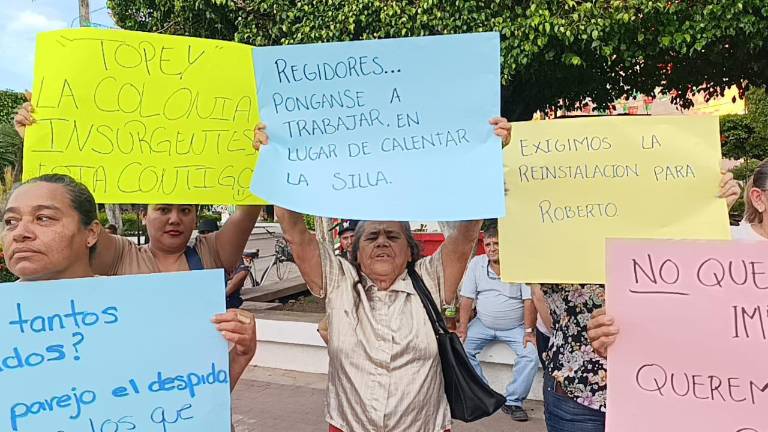 "TOPEY"
LA COLONIA
INSURGENTES
ESTA CONTIGO
REGIDORES...
PONGANSE A
TRABAJAR. EN
LUGAR DE CALENTAR
LA SILLA.
EXIGIMOS LA
REINSTALACION PARA
ROBERTO.
tantos
?
parejo el despido
los que
NO QUE
IM
QUEREM